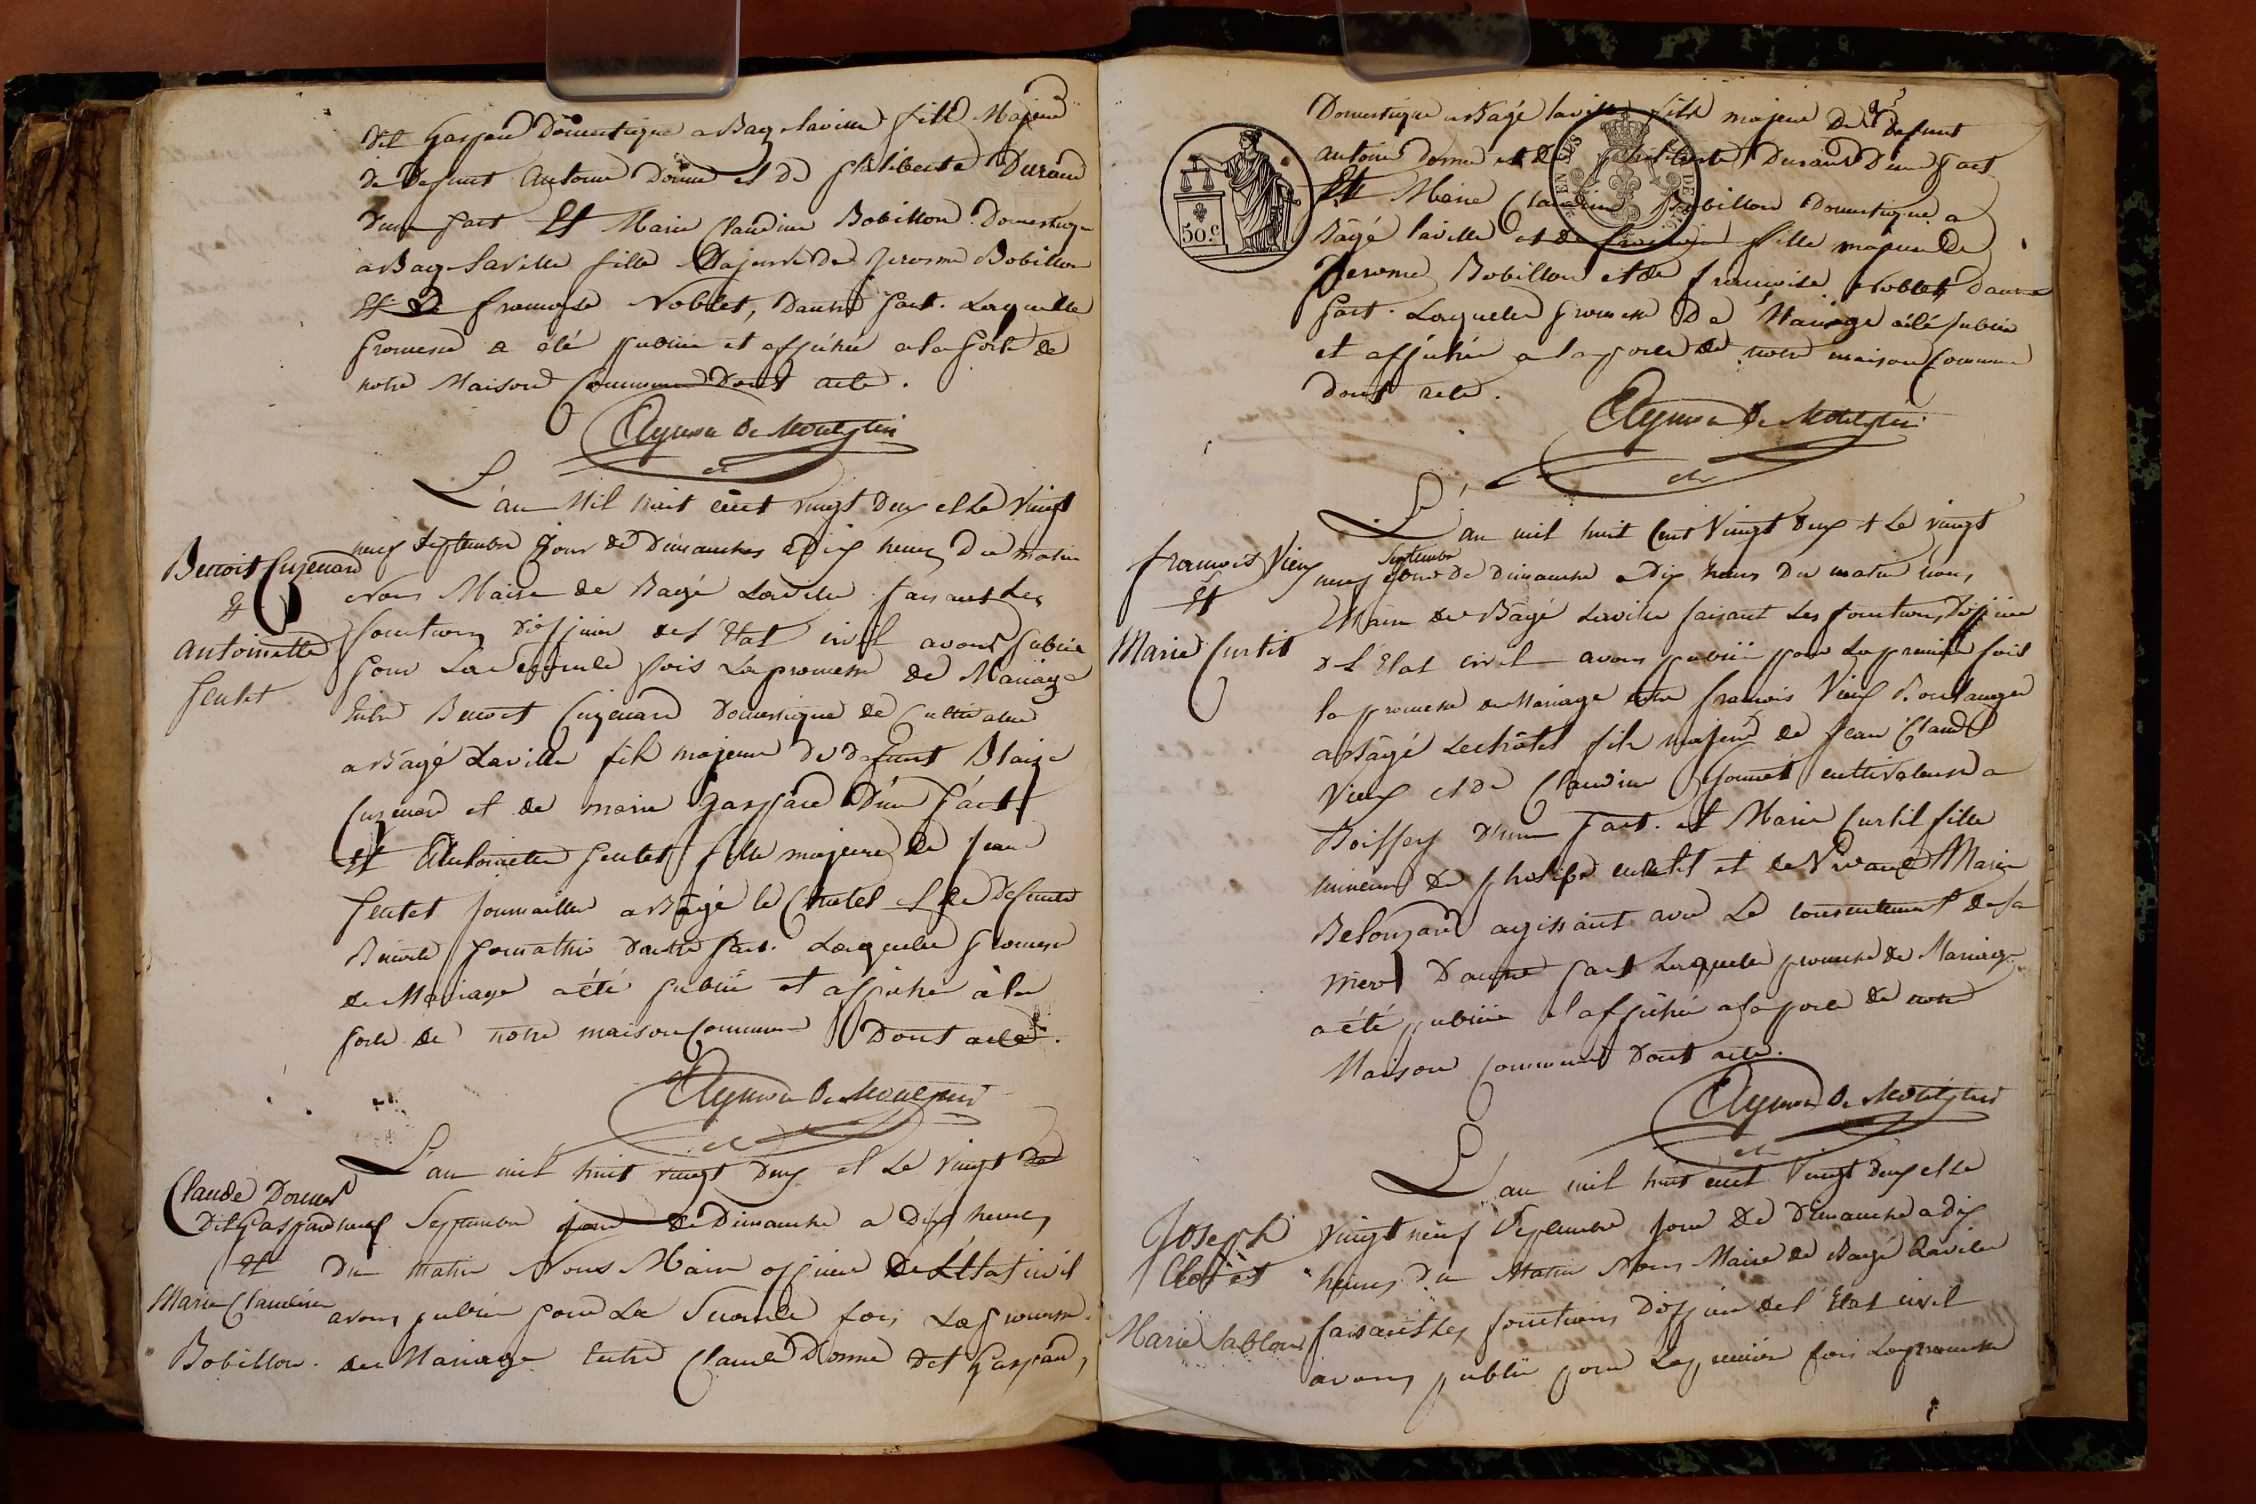 dit Gaspard Domestique a Bagé laville fils Majeur
de defunt Antoine Donné et de philiberte Durand
d'une part Et Marie Claudine Bobillon Domestique
a Bagé Laville fille Majeure de Jerosme Bobillon
Et De francoise Noblet, dautre part. Laquelle
promesse a été publiée et affichée a la porte de
notre Maison Commune Dont acte.
Aymon De Montépin
L'an Mil huit cent vingt deux et le Vingt
Benoit Cuzenard
Et
Antoinette
Feutet
neuf Septembre Jour de Dimanches a Dix heures Du matin
Nous Maire de Bagé Laville faisant les
fonctions d'officier de l'Etat civil avons publié
pour La seconde fois La promesse de Mariage
Entre Benoit Cuzenard Domestique de Cultivateur
a Bagé Laville fils majeur de defunt Blaise
Cuzenard et de marie Gaspard D'une part
Et Antoinette Feutet fille majeure de Jean
Feutet Journaillier a Bagé le Chatel et de Defunte
Benoite dautre part. Laquelle promesse
de Mariage a été publiée et affichée à la
porte de notre maison Commune Dont acte.
Aymon De Montépin
L'an mil huit vingt deux et Le Vingt
Claude Donné
Dit Gaspard
Et
Marie Claudine
Bobillon.
neuf Septembre jour de Dimanche a Dix heures
Du Matin Nous Maire officier De L'Etat civil
avons publié pour La Seconde fois La promesse
de Mariage Entre Claude Donné dit Gaspard,
50.c
EN SUS
Domestique a Bagé laville fils majeur De defunt
antoine Donné et de philiberte Durand D'une part
Et Marie Claudine Bobillon Domestique a
Bagé laville et de françoise fille majeure De
Jerome Bobillon et de francoise Noblet dautre
part. Laquelle promesse De Mariage a été publiée
et affichée a la porte de notre maison Commune
dont acte.
Aymon De Montépin
L'an mil huit Cent Vingt deux et Le vingt
francois Vieux
Et
Marie Curtil
Septembre
neuf jour De Dimanche a Dix heures Du matin nous
Maire de Bagé Laville faisant Les fonctions D'officier
de L'Etat civil avons publié pour La premiere fois
la promesse de Mariage entre francois Vieux Boulanger
a Bâgé Lechâtel fils majeur de Jean Claude
Vieux et de Claudine Jonnet cultivateurs a
Boissey d'une part. et Marie Curtil fille
mineure de philipe curtil et de Marie
Belouzard agissant avec Le consentement de sa
mère D'autre part Laquelle promesse de Mariage
a été publiée et affichée a la porte de notre
Maison Commune Dont acte.
Aymon De Montépin
L'an mil huit cent Vingt deux et le
Joseph
Clot et
Marie Sablon
Vingt neuf Septembre jour De Dimanche a dix
heures du Matin Nous Maire de Bagé Laville
faisant les fonctions D'officier de l'Etat civil
avons publié pour La premiere fois La promesse